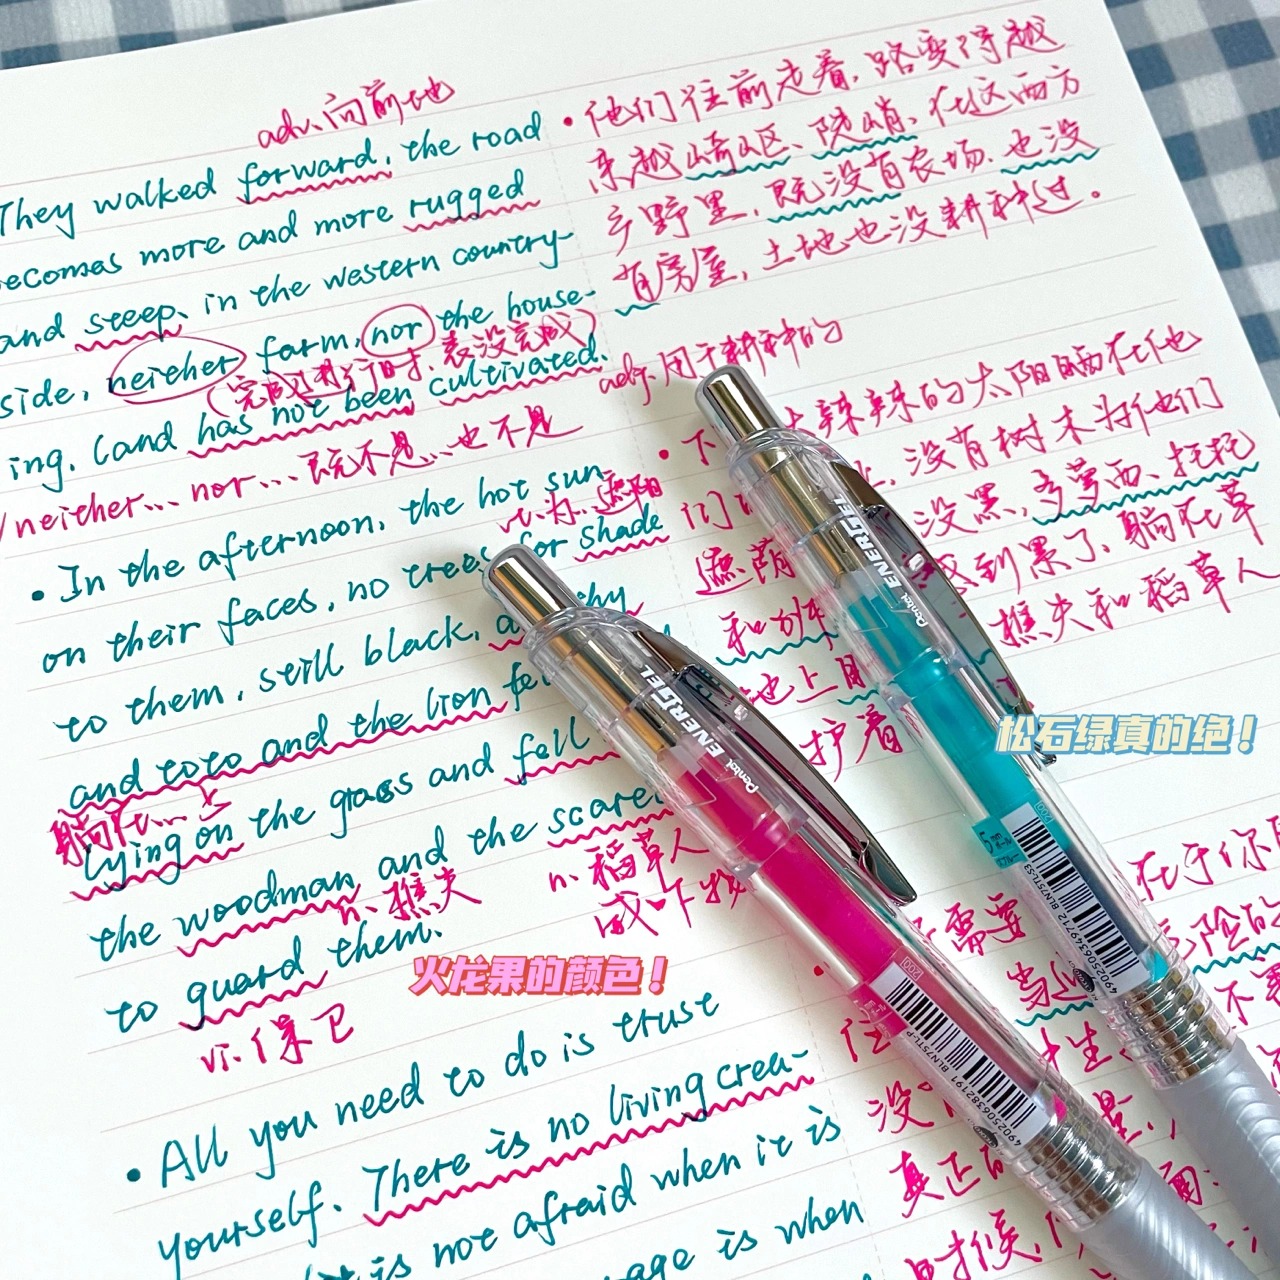 adv.向前地
They walked forward, the road
becomes more and more rugged
and steep, in the western country-
side, neither farm, nor the house-
(完成进行时,表没完成)
ing. (and has not been cultivated.
neither... nor... 既不是...也不是
• In the afternoon, the hot sun
vt.为..遮阳
on their faces, no trees for shade
to them, still black,
and toto and the lion fe
躺在...上
lying on the grass and fell
the woodman and the scare
n.樵夫
n.稻草人
to guard them.
vi.保卫
• All you need to do is trust
yourself. There is no living crea-
it is not afraid when it is
is when
• 他们往前走着,路变得越
来越崎岖、陡峭、在这西方
乡野里,既没有农场、也没
有房屋,土地也没耕种过。
adj.用于耕种的
• 下 火辣辣的太阳晒在他
们 没有树木为他们
遮荫 没黑,多萝西、托托
和 感到累了、躺在草
地上 樵夫和稻草人
护着
在于你
需要 危险的
当
没
真正的
时候,
火龙果的颜色!
松石绿真的绝!
Pentel ENERGEL
4902506382191 BLN75TL-P
Pentel ENERGEL
4902506349712 BLN75TL-S3